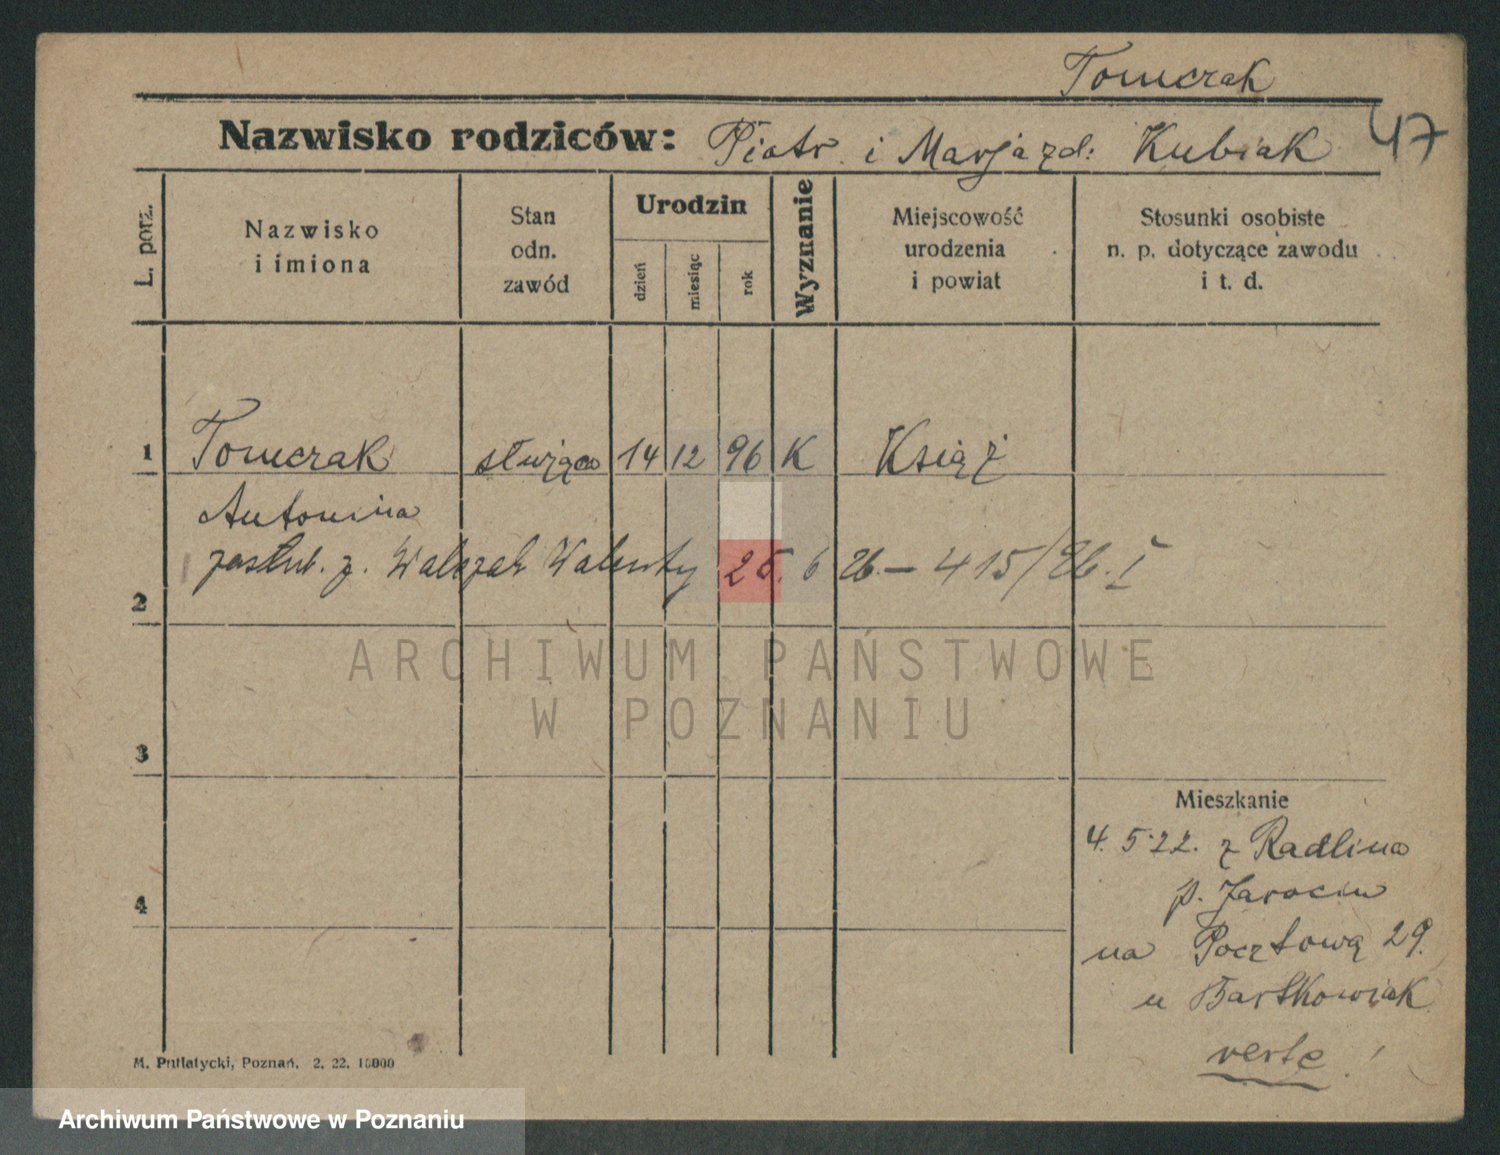 Tomczak
Nazwisko rodziców: Piotr i Marja zd: Kubiak 47
L. porz.
Nazwisko
i imiona
Stan
odn.
zawód
Urodzin
dzień
miesiąc
rok
Wyznanie
Miejscowość
urodzenia
i powiat
Stosunki osobiste
n. p. dotyczące zawodu
i t. d.
1 Tomczak służąca 14 12 96 K Książ
Antonina
zaślub. z. Walczak Walenty 25. 6 26. – 415/26. I
2
3
Mieszkanie
4. 5 22. z Radlina
p. Jarocin
4
na Pocztową 29.
u Bartkowiak
verte!
M. Putiatycki, Poznań. 2. 22. 10000
ARCHIWUM PAŃSTWOWE
W POZNANIU
Archiwum Państwowe w Poznaniu